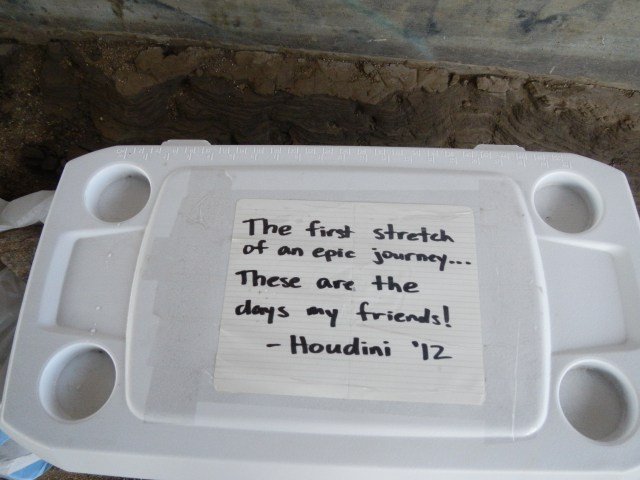 The first stretch
of an epic journey...
These are the
days my friends!
- Houdini '12